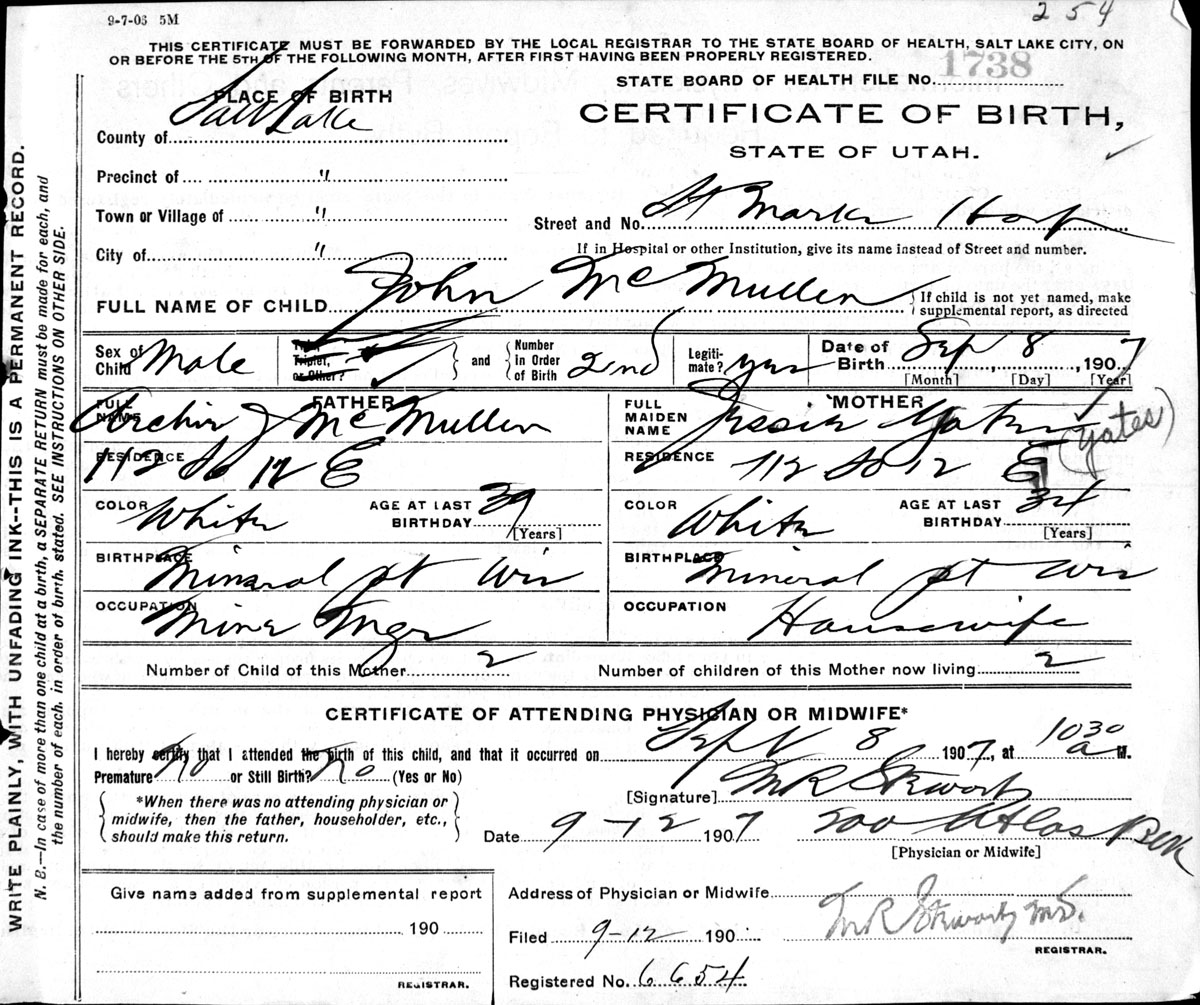 9-7-06 5M
254
THIS CERTIFICATE MUST BE FORWARDED BY THE LOCAL REGISTRAR TO THE STATE BOARD OF HEALTH, SALT LAKE CITY, ON
OR BEFORE THE 5TH OF THE FOLLOWING MONTH, AFTER FIRST HAVING BEEN PROPERLY REGISTERED.
STATE BOARD OF HEALTH FILE NO. 1738
PLACE OF BIRTH
CERTIFICATE OF BIRTH,
STATE OF UTAH.
County of Salt Lake
Precinct of "
Town or Village of "
Street and No. St Marks Hosp
If in Hospital or other Institution, give its name instead of Street and number.
City of "
FULL NAME OF CHILD John McMullen
If child is not yet named, make
supplemental report, as directed
Sex of Child Male
Twin, Triplet, or Other?
and
Number in Order of Birth 2nd
Legitimate? yes
Date of Birth Sep 8, 1907
[Month] [Day] [Year]
FATHER
FULL NAME Archie J McMullen
RESIDENCE 112 So 12 E
COLOR White
AGE AT LAST BIRTHDAY 39
[Years]
BIRTHPLACE Mineral pt Wis
OCCUPATION Mine Mgr
MOTHER
FULL MAIDEN NAME Jessie Yates (yates)
RESIDENCE 112 So 12 E
COLOR White
AGE AT LAST BIRTHDAY 34
[Years]
BIRTHPLACE Mineral pt Wis
OCCUPATION Housewife
Number of Child of this Mother 2
Number of children of this Mother now living 2
CERTIFICATE OF ATTENDING PHYSICIAN OR MIDWIFE*
I hereby certify that I attended the birth of this child, and that it occurred on Sept 8 1907, at 1030 a M.
Premature No or Still Birth? No (Yes or No)
*When there was no attending physician or
midwife, then the father, householder, etc.,
should make this return.
[Signature] M R Stewart
Date 9-12 1907
200 Atlas Blk
[Physician or Midwife]
Give name added from supplemental report
190
REGISTRAR.
Address of Physician or Midwife
Filed 9-12 190
M R Stewart M.D.
REGISTRAR.
Registered No. 6654
WRITE PLAINLY, WITH UNFADING INK--THIS IS A PERMANENT RECORD.
N. B.—In case of more than one child at a birth, a SEPARATE RETURN must be made for each, and
the number of each, in order of birth, stated. SEE INSTRUCTIONS ON OTHER SIDE.